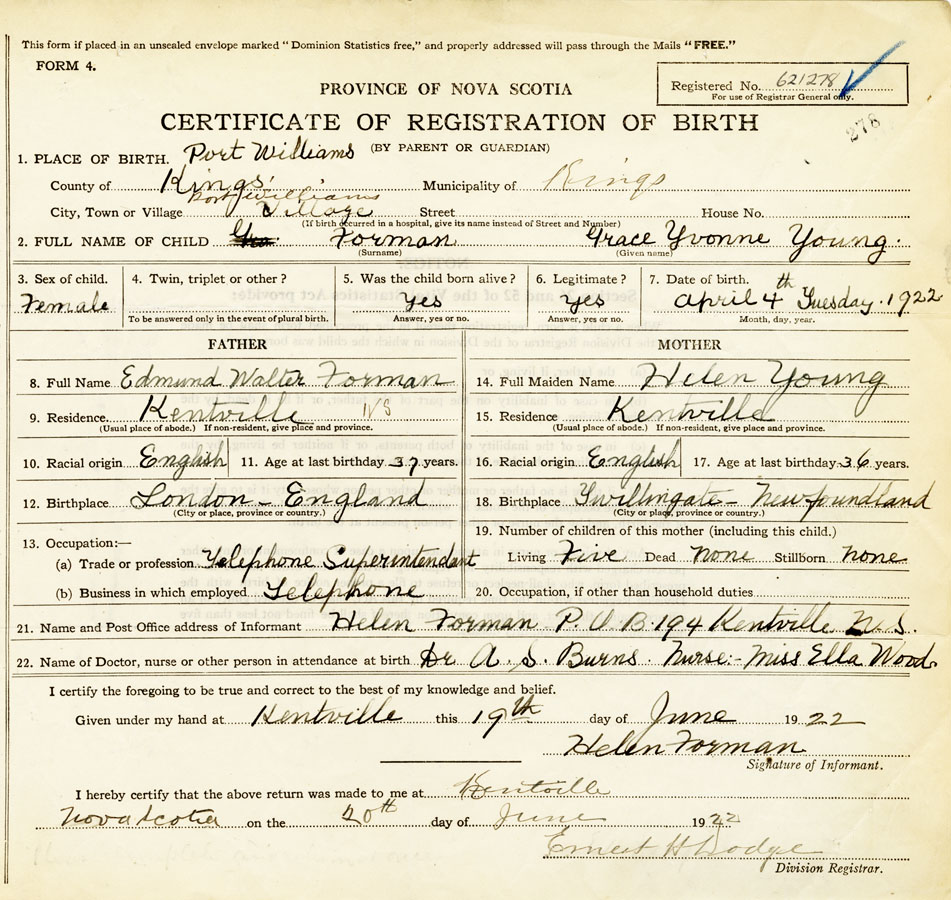 This form if placed in an unsealed envelope marked "Dominion Statistics free," and properly addressed will pass through the Mails "FREE."
FORM 4.
Registered No. 621278
For use of Registrar General only.
276
PROVINCE OF NOVA SCOTIA
CERTIFICATE OF REGISTRATION OF BIRTH
(BY PARENT OR GUARDIAN)
1. PLACE OF BIRTH. Port Williams
County of Kings Municipality of Kings
Port Williams
City, Town or Village Village Street House No.
(If birth occurred in a hospital, give its name instead of Street and Number)
2. FULL NAME OF CHILD Gra Forman Grace Yvonne Young.
(Surname) (Given name)
3. Sex of child. 4. Twin, triplet or other? 5. Was the child born alive? 6. Legitimate? 7. Date of birth.
Female yes yes April 4th Tuesday. 1922
To be answered only in the event of plural birth. Answer, yes or no. Answer, yes or no. Month, day, year.
FATHER
8. Full Name Edmund Walter Forman
9. Residence. Kentville NS
(Usual place of abode.) If non-resident, give place and province.
10. Racial origin English 11. Age at last birthday 37 years.
12. Birthplace London - England
(City or place, province or country.)
13. Occupation:—
(a) Trade or profession Telephone Superintendant
(b) Business in which employed Telephone
MOTHER
14. Full Maiden Name Helen Young
15. Residence Kentville
(Usual place of abode.) If non-resident, give place and province.
16. Racial origin English 17. Age at last birthday 36 years.
18. Birthplace Twillingate - Newfoundland
(City or place, province or country.)
19. Number of children of this mother (including this child.)
Living Five Dead None Stillborn none
20. Occupation, if other than household duties
21. Name and Post Office address of Informant Helen Forman P.O.B. 194 Kentville N.S.
22. Name of Doctor, nurse or other person in attendance at birth Dr A. S. Burns. Nurse:- Miss Ella Wood.
I certify the foregoing to be true and correct to the best of my knowledge and belief.
Given under my hand at Kentville this 19th day of June 1922
Helen Forman
Signature of Informant.
I hereby certify that the above return was made to me at Kentville
Nova Scotia on the 20th day of June 1922
Ernest H Dodge
Division Registrar.